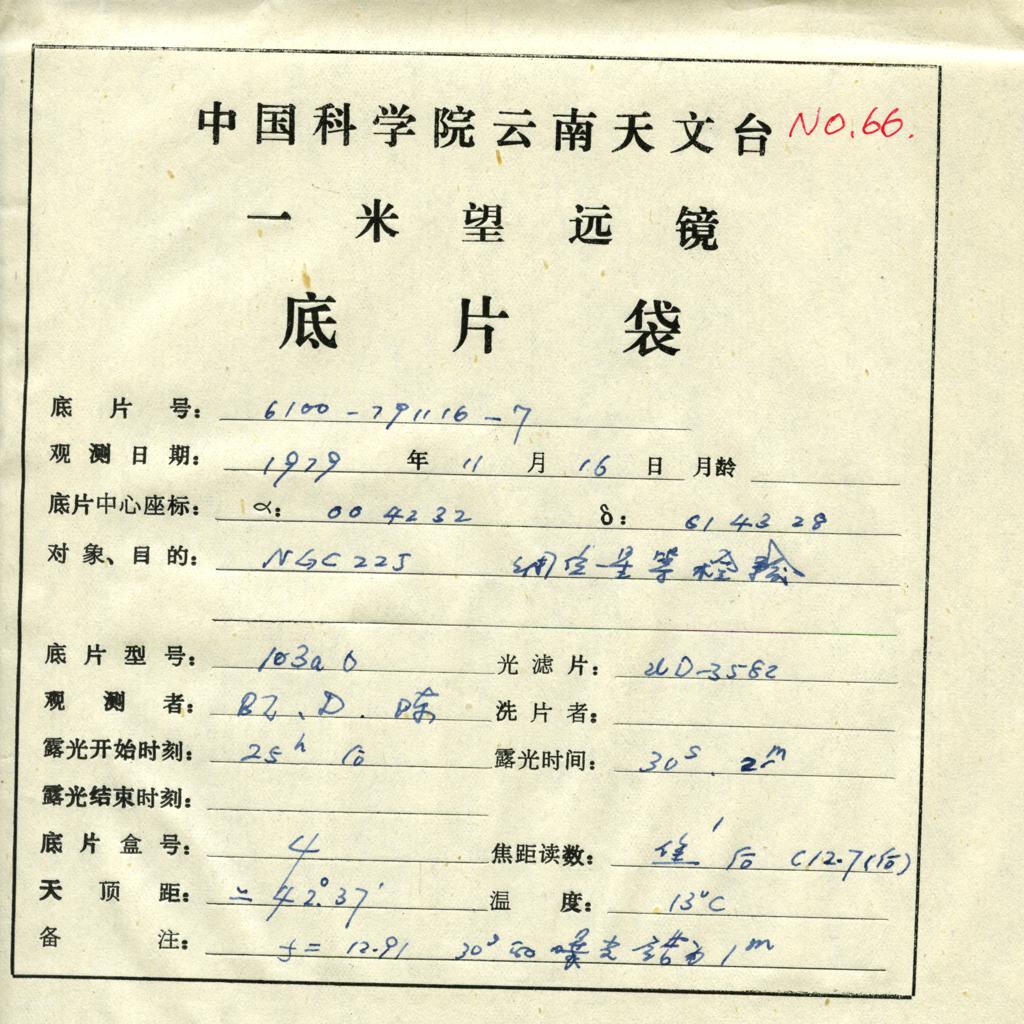 中国科学院云南天文台 NO.66.
一米望远镜
底片袋
底片号: 6100-791116-7
观测日期: 1979 年 11 月 16 日 月龄
底片中心座标: α: 00 42 32 δ: 61 43 28
对象、目的: NGC 225 星等检验
底片型号: 103a O 光滤片: 3582
观测者: 陈 洗片者:
露光开始时刻: 25h 露光时间: 30s. 2m
露光结束时刻:
底片盒号: 4 焦距读数: (12.7(后)
天顶距: ≃ 42°.37' 温度: 13°C
备注: f = 12.91 30s 曝光 1m